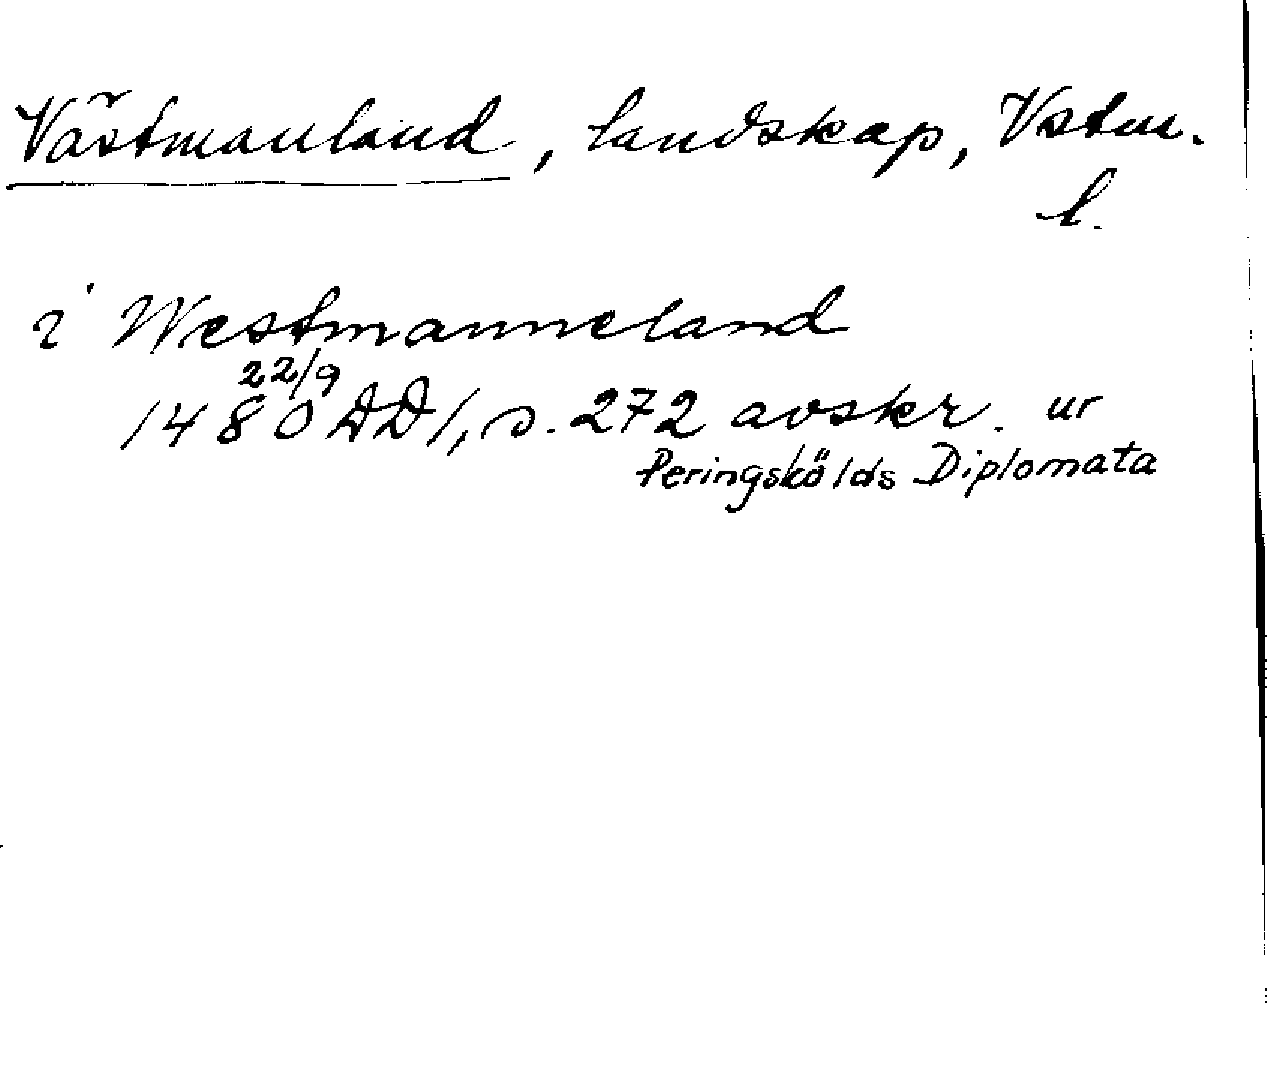 Västmanland, landskap, Vstm.
l.
i Westmanneland
22/9
1480 DD 1, s. 272 avskr. ur
Peringskölds Diplomata